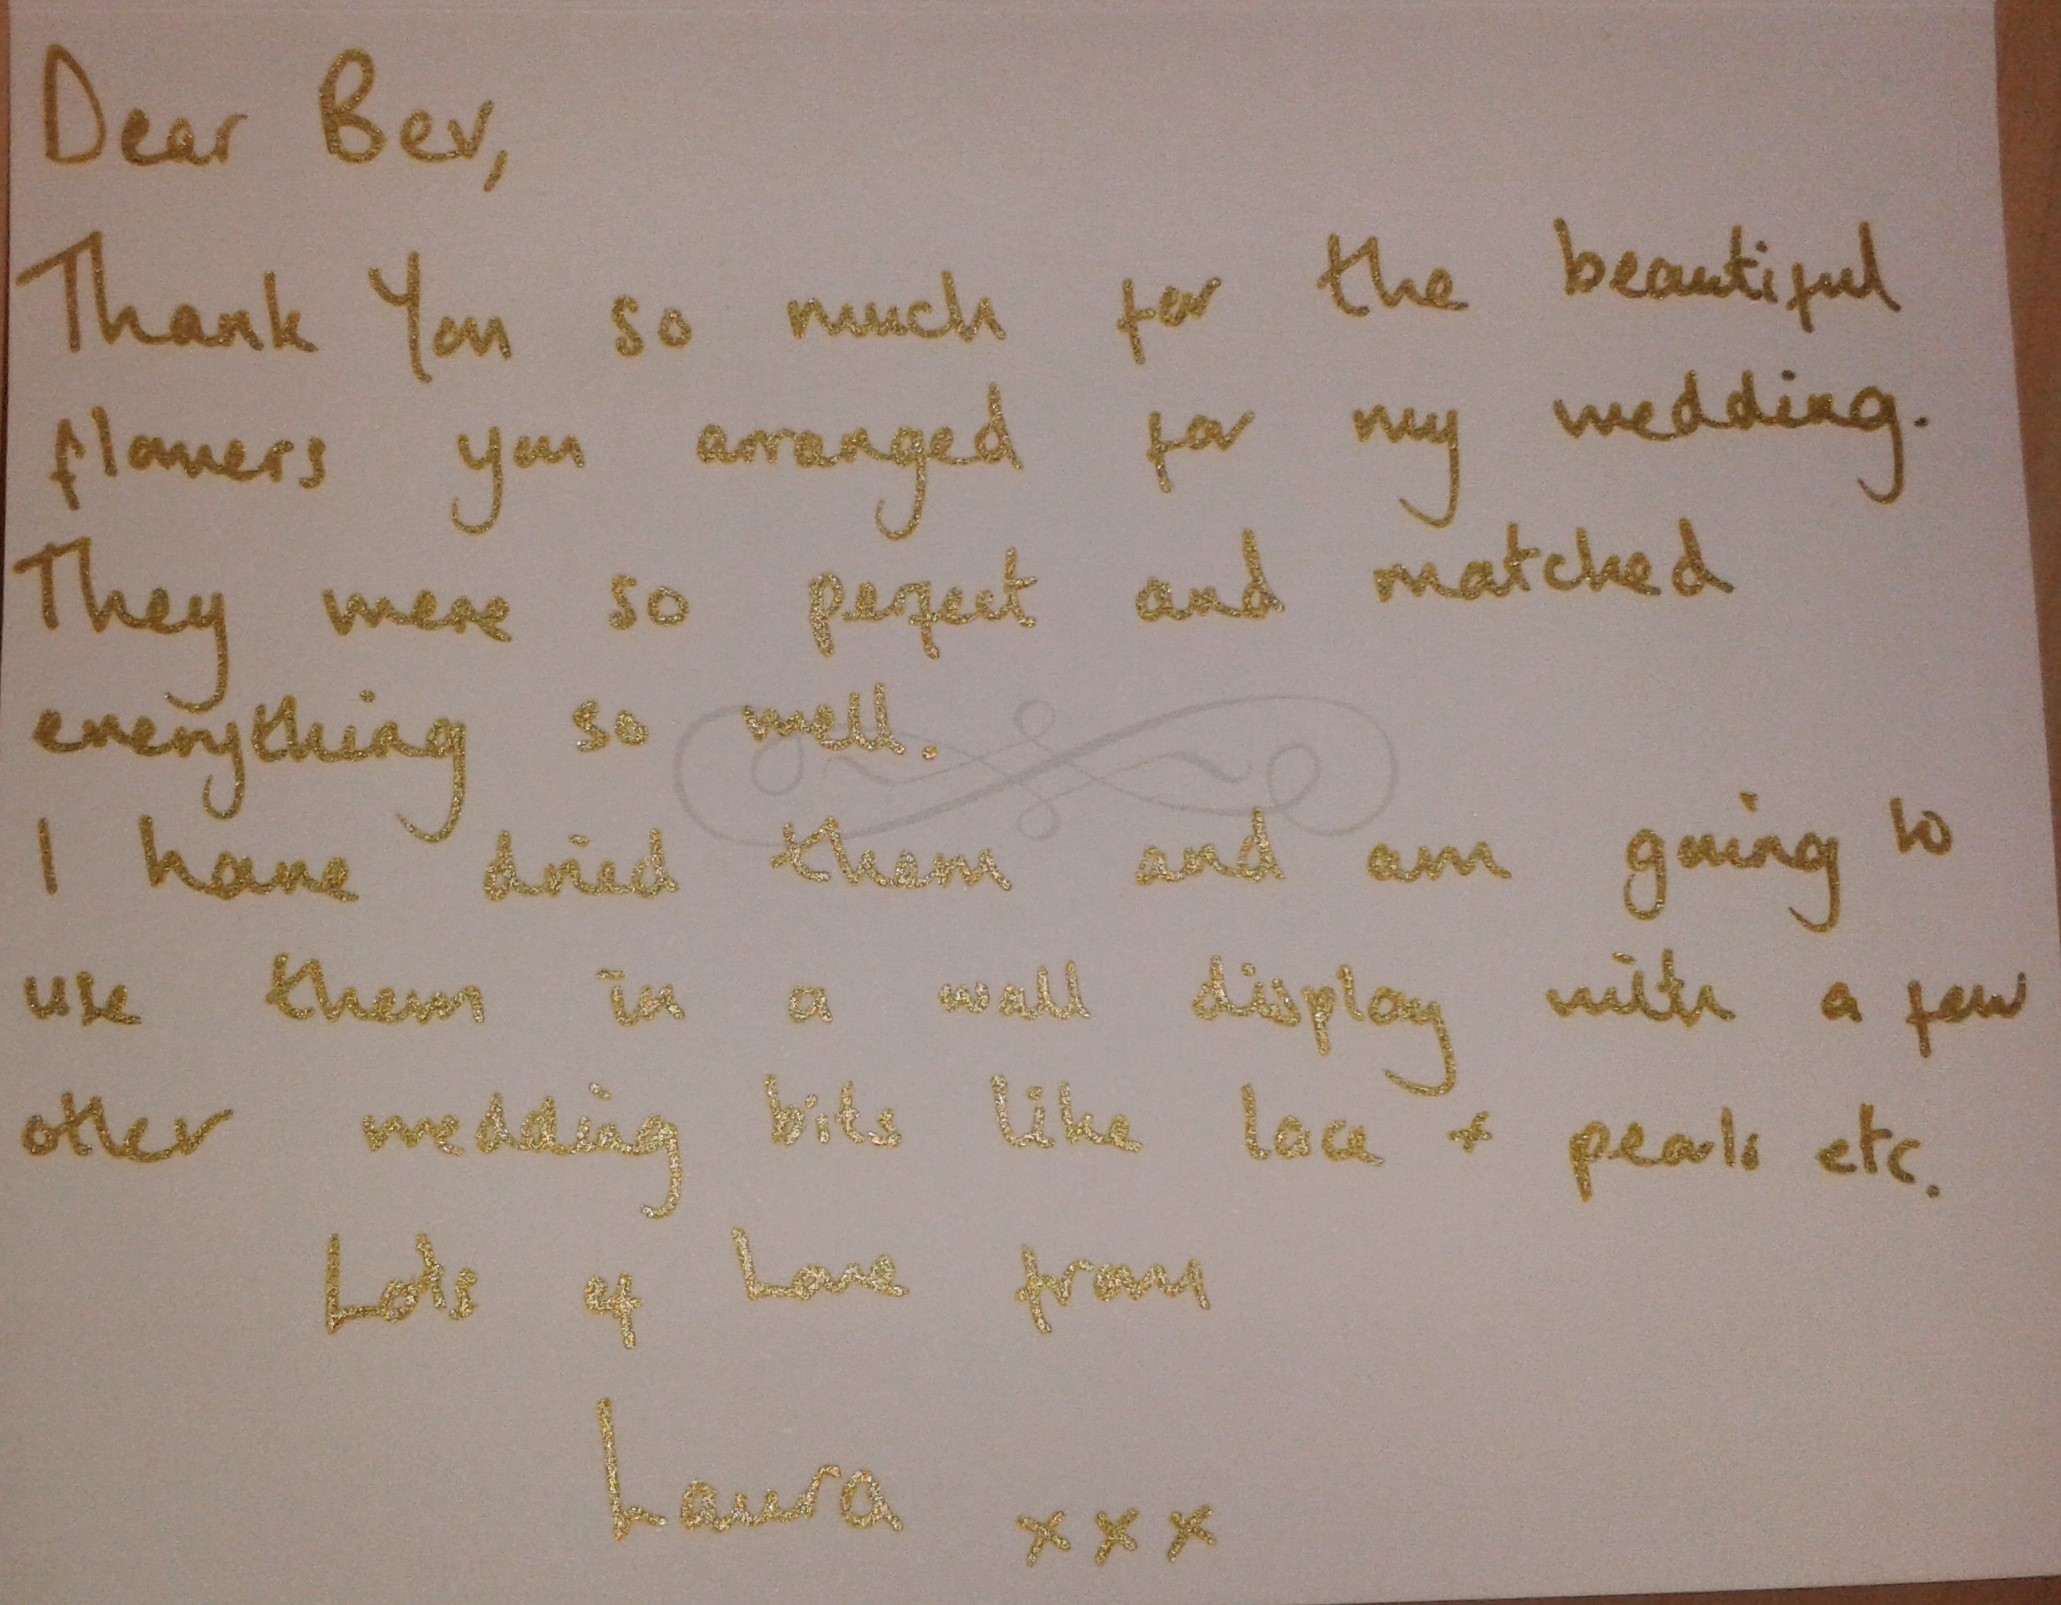 Dear Bev,
Thank You so much for the beautiful
flowers you arranged for my wedding.
They were so perfect and matched
everything so well.
I have dried them and am going to
use them in a wall display with a few
other wedding bits like lace + pearls etc.
Lots of Love from
Laura xxx